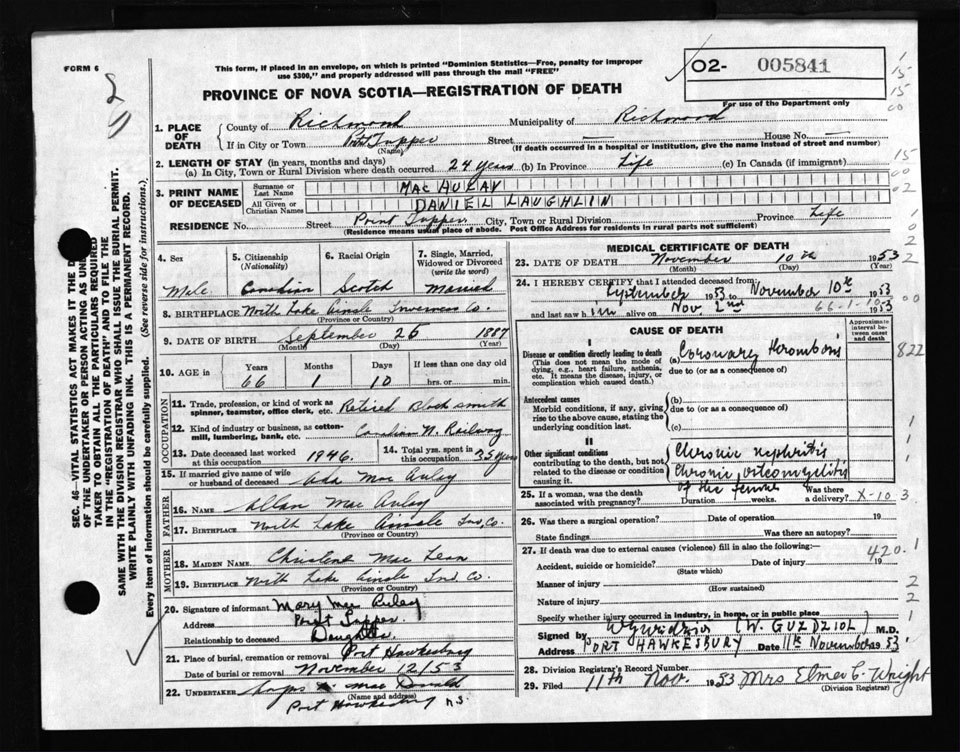 FORM 6
This form, if placed in an envelope, on which is printed "Dominion Statistics—Free, penalty for improper
use $300," and properly addressed will pass through the mail "FREE"
O2- 005841
For use of the Department only
PROVINCE OF NOVA SCOTIA—REGISTRATION OF DEATH
1. PLACE OF DEATH
County of Richmond Municipality of Richmond
If in City or Town Point Tupper Street — House No. —
(Name) (If death occurred in a hospital or institution, give the name instead of street and number)
2. LENGTH OF STAY (in years, months and days)
(a) In City, Town or Rural Division where death occurred 24 years (b) In Province Life (c) In Canada (if immigrant)
3. PRINT NAME OF DECEASED
Surname or Last Name MAC AULAY
All Given or Christian Names DANIEL LAUGHLIN
RESIDENCE No. Street Point Tupper City, Town or Rural Division Province Life
(Residence means usual place of abode. Post Office Address for residents in rural parts not sufficient)
4. Sex
Male
5. Citizenship (Nationality)
Canadian
6. Racial Origin
Scotch
7. Single, Married, Widowed or Divorced (write the word)
Married
8. BIRTHPLACE North Lake Ainslie Inverness Co.
(Province or Country)
9. DATE OF BIRTH September 25 1887
(Month) (Day) (Year)
10. AGE in Years 66 Months 1 Days 10 If less than one day old
hrs. or min.
OCCUPATION
11. Trade, profession, or kind of work as spinner, teamster, office clerk, etc. Retired Blacksmith
12. Kind of industry or business, as cotton-mill, lumbering, bank, etc. Canadian N. Railway
13. Date deceased last worked at this occupation 1946.
14. Total yrs. spent in this occupation 35 years
15. If married give name of wife or husband of deceased Ada Mac Aulay
FATHER
16. Name Allan Mac Aulay
17. Birthplace North Lake Ainslie Inv. Co.
(Province or Country)
MOTHER
18. MAIDEN NAME Mac Lean
19. BIRTHPLACE North Lake Ainslie Inv. Co.
(Province or Country)
20. Signature of informant Mary Mac Aulay
Address Point Tupper
Relationship to deceased Daughter
21. Place of burial, cremation or removal Port Hawkesbury
Date of burial or removal November 12/53
22. UNDERTAKER Mac Donald
(Name and address)
Port Hawkesbury N.S.
MEDICAL CERTIFICATE OF DEATH
23. DATE OF DEATH November 10th 1953
(Month) (Day) (Year)
24. I HEREBY CERTIFY that I attended deceased from
September 1953 to November 10th 1953
and last saw h im alive on Nov. 2nd 1953
66-1-10
CAUSE OF DEATH
Approximate interval between onset and death
I
Disease or condition directly leading to death
(This does not mean the mode of dying, e.g., heart failure, asthenia, etc. It means the disease, injury, or complication which caused death.)
(a) Coronary thrombosis
due to (or as a consequence of)
822
Antecedent causes
Morbid conditions, if any, giving rise to the above cause, stating the underlying condition last.
(b)
due to (or as a consequence of)
(c)
II
Other significant conditions contributing to the death, but not related to the disease or condition causing it.
Chronic nephritis
Chronic osteomyelitis
of the femur
25. If a woman, was the death associated with pregnancy? Duration weeks. Was there a delivery? X-10 3
26. Was there a surgical operation? Date of operation 19
State findings Was there an autopsy?
27. If death was due to external causes (violence) fill in also the following:—
420.1
Accident, suicide or homicide? Date of injury 19
(State which)
Manner of injury
(How sustained)
Nature of injury
Specify whether injury occurred in industry, in home, or in public place
Signed by (W. GUZDZIOL) M.D.
Address PORT HAWKESBURY Date 11th November 1953
28. Division Registrar's Record Number
29. Filed 11th Nov. 1953 Mrs Elmer C. Wright
(Division Registrar)
SEC. 46—VITAL STATISTICS ACT MAKES IT THE D
OF THE UNDERTAKER OR PERSON ACTING AS UND
TAKER TO OBTAIN ALL THE PARTICULARS REQUIRED
IN THE "REGISTRATION OF DEATH" AND TO FILE THE
SAME WITH THE DIVISION REGISTRAR WHO SHALL ISSUE THE BURIAL PERMIT.
WRITE PLAINLY WITH UNFADING INK. THIS IS A PERMANENT RECORD.
Every item of information should be carefully supplied. (See reverse side for instructions.)